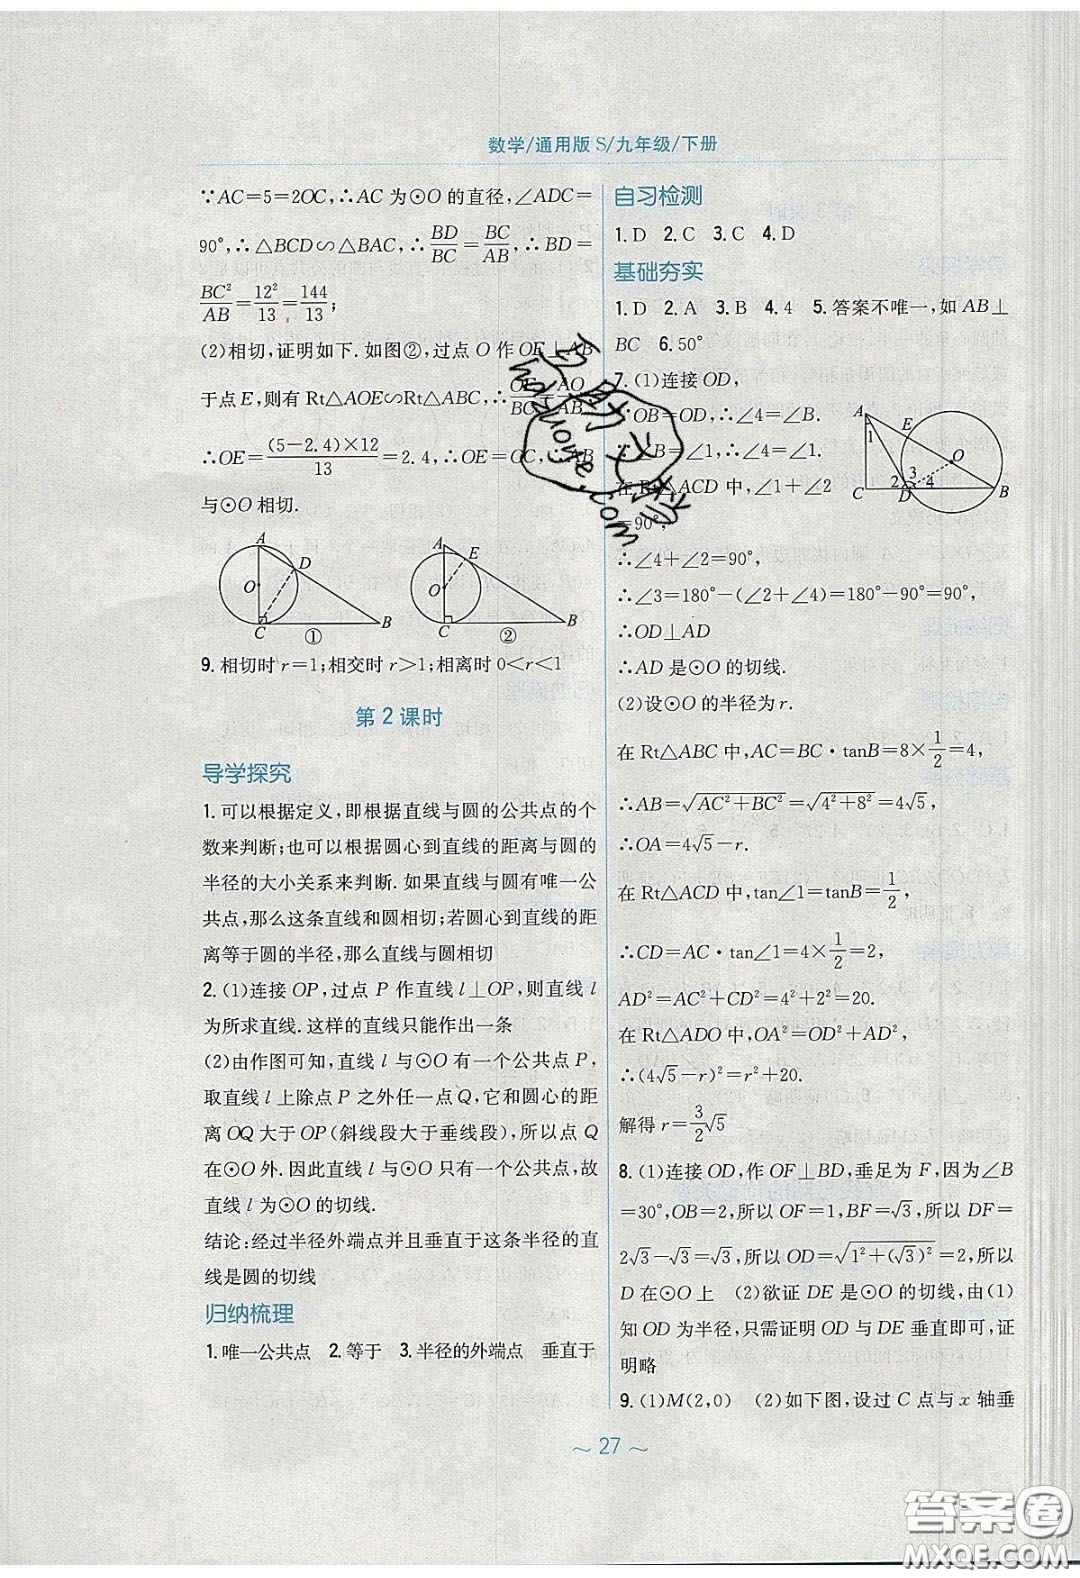 数学/通用版 S/九年级/下册
∵AC=5=2OC,∴AC 为⊙O 的直径,∠ADC=
90°,∴△BCD∽△BAC,∴BD/BC=BC/AB,∴BD=
BC²/AB=12²/13=144/13;
(2)相切,证明如下.如图②,过点 O 作 OE⊥AB
于点 E,则有 Rt△AOE∽Rt△ABC,∴OE/BC=AO/AB.
∴OE=(5-2.4)×12/13=2.4,∴OE=OC,∴AB
与⊙O 相切.
A
D
O
C
B
①
A
E
O
C
B
②
9. 相切时 r=1;相交时 r>1;相离时 0<r<1
第 2 课时
导学探究
1. 可以根据定义,即根据直线与圆的公共点的个
数来判断;也可以根据圆心到直线的距离与圆的
半径的大小关系来判断.如果直线与圆有唯一公
共点,那么这条直线和圆相切;若圆心到直线的距
离等于圆的半径,那么直线与圆相切
2. (1)连接 OP,过点 P 作直线 l⊥OP,则直线 l
为所求直线.这样的直线只能作出一条
(2)由作图可知,直线 l 与⊙O 有一个公共点 P,
取直线 l 上除点 P 之外任一点 Q,它和圆心的距
离 OQ 大于 OP(斜线段大于垂线段),所以点 Q
在⊙O 外.因此直线 l 与⊙O 只有一个公共点,故
直线 l 为⊙O 的切线.
结论:经过半径外端点并且垂直于这条半径的直
线是圆的切线
归纳梳理
1. 唯一公共点 2. 等于 3. 半径的外端点 垂直于
自习检测
1. D 2. C 3. C 4. D
基础夯实
1. D 2. A 3. B 4. 4 5. 答案不唯一,如 AB⊥
BC 6. 50°
7. (1)连接 OD,
∵OB=OD,∴∠4=∠B.
∵∠B=∠1,∴∠1=∠4.
在 Rt△ACD 中,∠1+∠2
=90°,
A
E
1
O
3
2
4
C
D
B
∴∠4+∠2=90°.
∴∠3=180°-(∠2+∠4)=180°-90°=90°,
∴OD⊥AD
∴AD 是⊙O 的切线.
(2)设⊙O 的半径为 r.
在 Rt△ABC 中,AC=BC·tanB=8×1/2=4,
∴AB=√(AC²+BC²)=√(4²+8²)=4√5,
∴OA=4√5-r.
在 Rt△ACD 中,tan∠1=tanB=1/2,
∴CD=AC·tan∠1=4×1/2=2,
AD²=AC²+CD²=4²+2²=20.
在 Rt△ADO 中,OA²=OD²+AD²,
∴(4√5-r)²=r²+20.
解得 r=3/2√5
8. (1)连接 OD,作 OF⊥BD,垂足为 F,因为∠B
=30°,OB=2,所以 OF=1,BF=√3,所以 DF=
2√3-√3=√3,所以 OD=√(1²+(√3)²)=2,所以
D 在⊙O 上 (2)欲证 DE 是⊙O 的切线,由(1)
知 OD 为半径,只需证明 OD 与 DE 垂直即可,证
明略
9. (1)M(2,0) (2)如下图,设过 C 点与 x 轴垂
~ 27 ~
答案圈
MXQE.COM